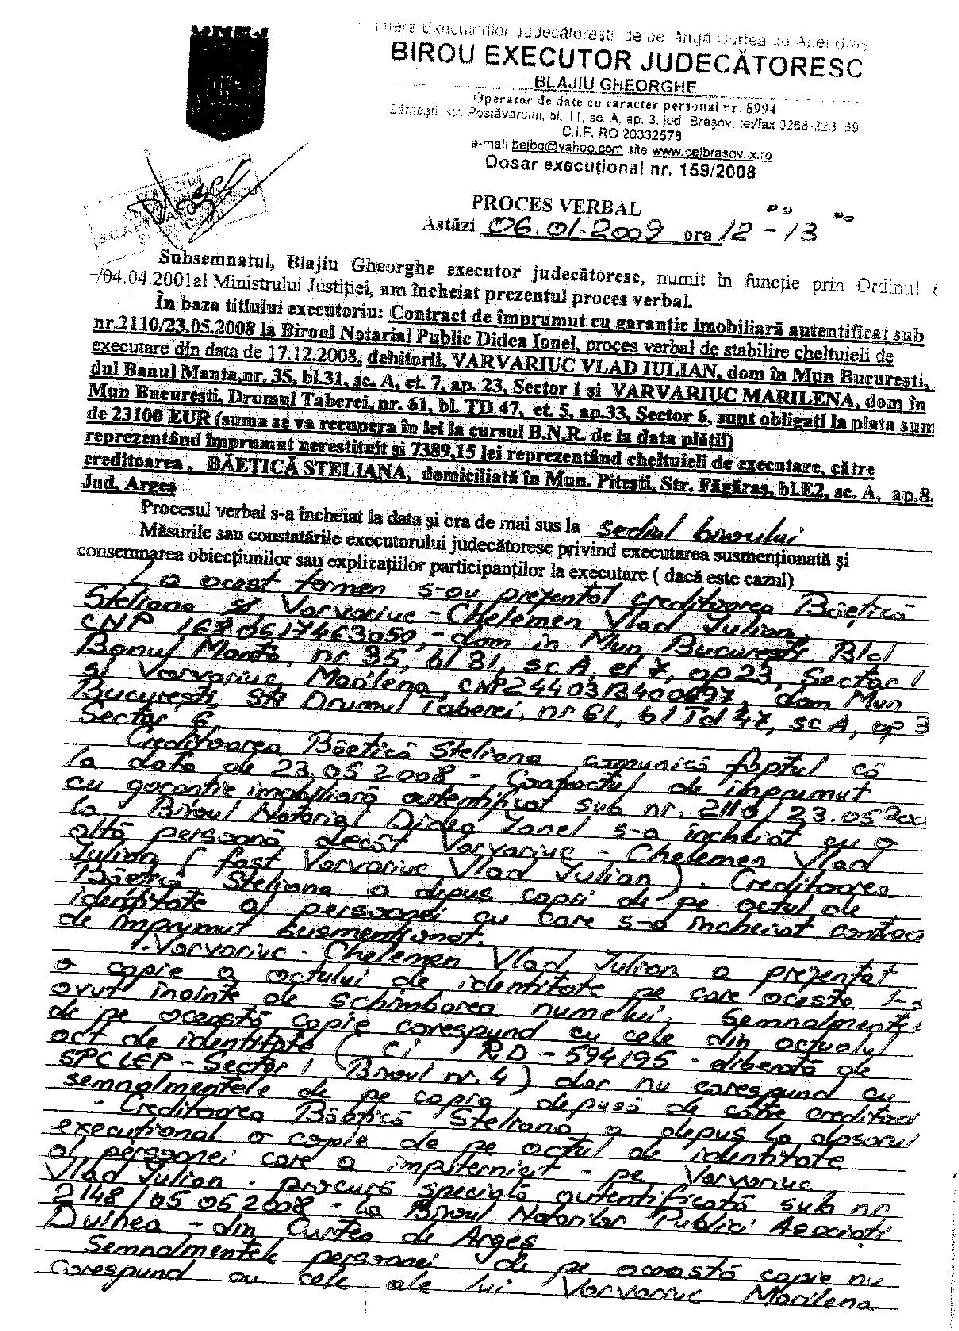 Camera Executorilor Judecătorești de pe lângă Curtea de Apel
BIROU EXECUTOR JUDECĂTORESC
BLAJIU GHEORGHE
Operator de date cu caracter personal nr. 6994
bl. 11, sc. A, ap. 3, jud. Brașov, tel/fax 0268-
C.I.F. RO 20332573
e-mail bejbg@yahoo.com site
Dosar execuțional nr. 159/2008
PROCES VERBAL
Astăzi 06.01.2009 ora 12 - 13
Subsemnatul, Blajiu Gheorghe executor judecătoresc, numit în funcție prin Ordinul
/04.04.2001al Ministrului Justiției, am încheiat prezentul proces verbal.
În baza titlului executoriu: Contract de împrumut cu garanție imobiliară autentificat sub
nr.2110/23.05.2008 la Biroul Notarial Public Didea Ionel, proces verbal de stabilire cheltuieli de
executare din data de 17.12.2008, debitorii, VARVARIUC VLAD IULIAN, dom în Mun București,
dul Banul Manta,nr. 35, bl.31, sc. A, et. 7, ap. 23, Sector 1 și VARVARIUC MARILENA, dom în
Mun București, Drumul Taberei, nr. 61, bl. TD 47, et. 5, ap.33, Sector 6, sunt obligați la plata sum
de 23100 EUR (suma se va recupera în lei la cursul B.N.R. de la data plății)
reprezentând împrumut nerestituit și 7389,15 lei reprezentând cheltuieli de executare, către
creditoarea , BĂETICĂ STELIANA, domiciliată în Mun. Pitești, Str. Făgăraș, bl.E2, sc. A, ap.8,
Jud. Argeș
Procesul verbal s-a încheiat la data și ora de mai sus la sediul biroului
Măsurile sau constatările executorului judecătoresc privind executarea susmenționată și
consemnarea obiecțiunilor sau explicațiilor participanților la executare ( dacă este cazul)
La acest termen s-au prezentat creditoarea Băetică
Steliana și Varvariuc - Chelemen Vlad Iulian,
CNP - dom în Mun București Bld
Banul Manta, nr 35, bl 31, sc A, et 7, ap 23, Sector 1
și Varvariuc Marilena, CNP , dom Mun
București, Str Drumul Taberei, nr 61, bl Td 47, sc A, ap 3
Sector 6
Creditoarea Băetică Steliana comunică faptul că
la data de 23.05 2008 - Contractul de împrumut
cu garanție imobiliară autentificat sub nr. 2110/23.05.200
la Biroul Notarial Didea Ionel s-a încheiat cu o
altă persoană decât Varvariuc - Chelemen Vlad
Iulian ( fost Varvariuc Vlad Iulian ). Creditoarea
Băetică Steliana a depus copii de pe actul de
identitate al persoanei cu care s-a încheiat contrac
de împrumut susmenționat.
Varvariuc - Chelemen Vlad Iulian a prezentat
o copie a actului de identitate pe care acesta l-a
avut înainte de schimbarea numelui. Semnalmente
de pe această copie corespund cu cele din actul
act de identitate ( Ci RD - 594195 - eliberată de
SPCLEP - Sector 1 ( Biroul nr. 4 ) dar nu corespund cu
semnalmentele de pe copia depusă de către creditoa
- Creditoarea Băetică Steliana a depus la dosarul
execuțional o copie de pe actul de identitate
al persoanei care a împuternicit - pe Varvariuc
Vlad Iulian - procură specială autentificată sub nr
2148/05 05 2008 - la Biroul Notarilor Publici Asociați
Dulhea - din Curtea de Argeș
Semnalmentele persoanei de pe această copie nu
corespund cu cele ale lui Varvariuc Marilena